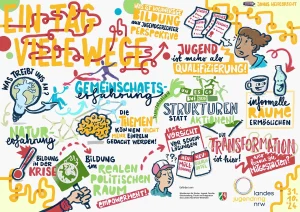 EIN TAG
VIELE WEGE
BILDUNG
AUS JUGENDLICHER
PERSPEKTIVE
JUGEND
ist mehr als
QUALIFIZIERUNG!
WAS TREIBT UNS AN?
GEMEINSCHAFTS-
erfahrung
DIE
THEMEN
KÖNNEN NICHT MEHR
EINZELN
GEDACHT WERDEN!
STRUKTUREN
STATT AKTIONEN!
informelle
RÄUME
ERMÖGLICHEN
NATUR
erfahrung
BILDUNG
IN DER
KRISE
BILDUNG
IM
REALEN
POLITISCHEN
RAUM
EMPOWERMENT!
VORSICHT
DIE
TRANSFORMATION
ist hier!
landes
jugendring
nrw